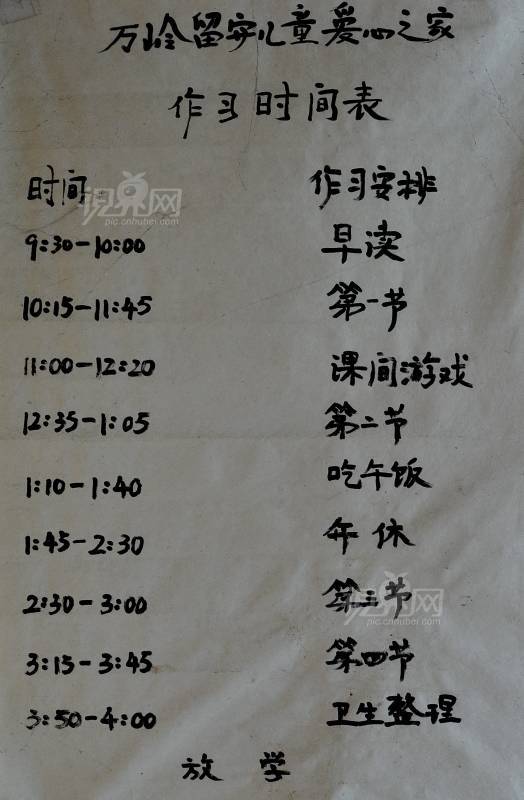 万岭留守儿童爱心之家
作习时间表
时间 作习安排
9:30-10:00 早读
10:15-11:45 第一节
11:00-12:20 课间游戏
12:35-1:05 第二节
1:10-1:40 吃午饭
1:45-2:30 午休
2:30-3:00 第三节
3:15-3:45 第四节
3:50-4:00 卫生整理
放学
视界网
pic.cnhubei.com
视界网
pic.cnhubei.com